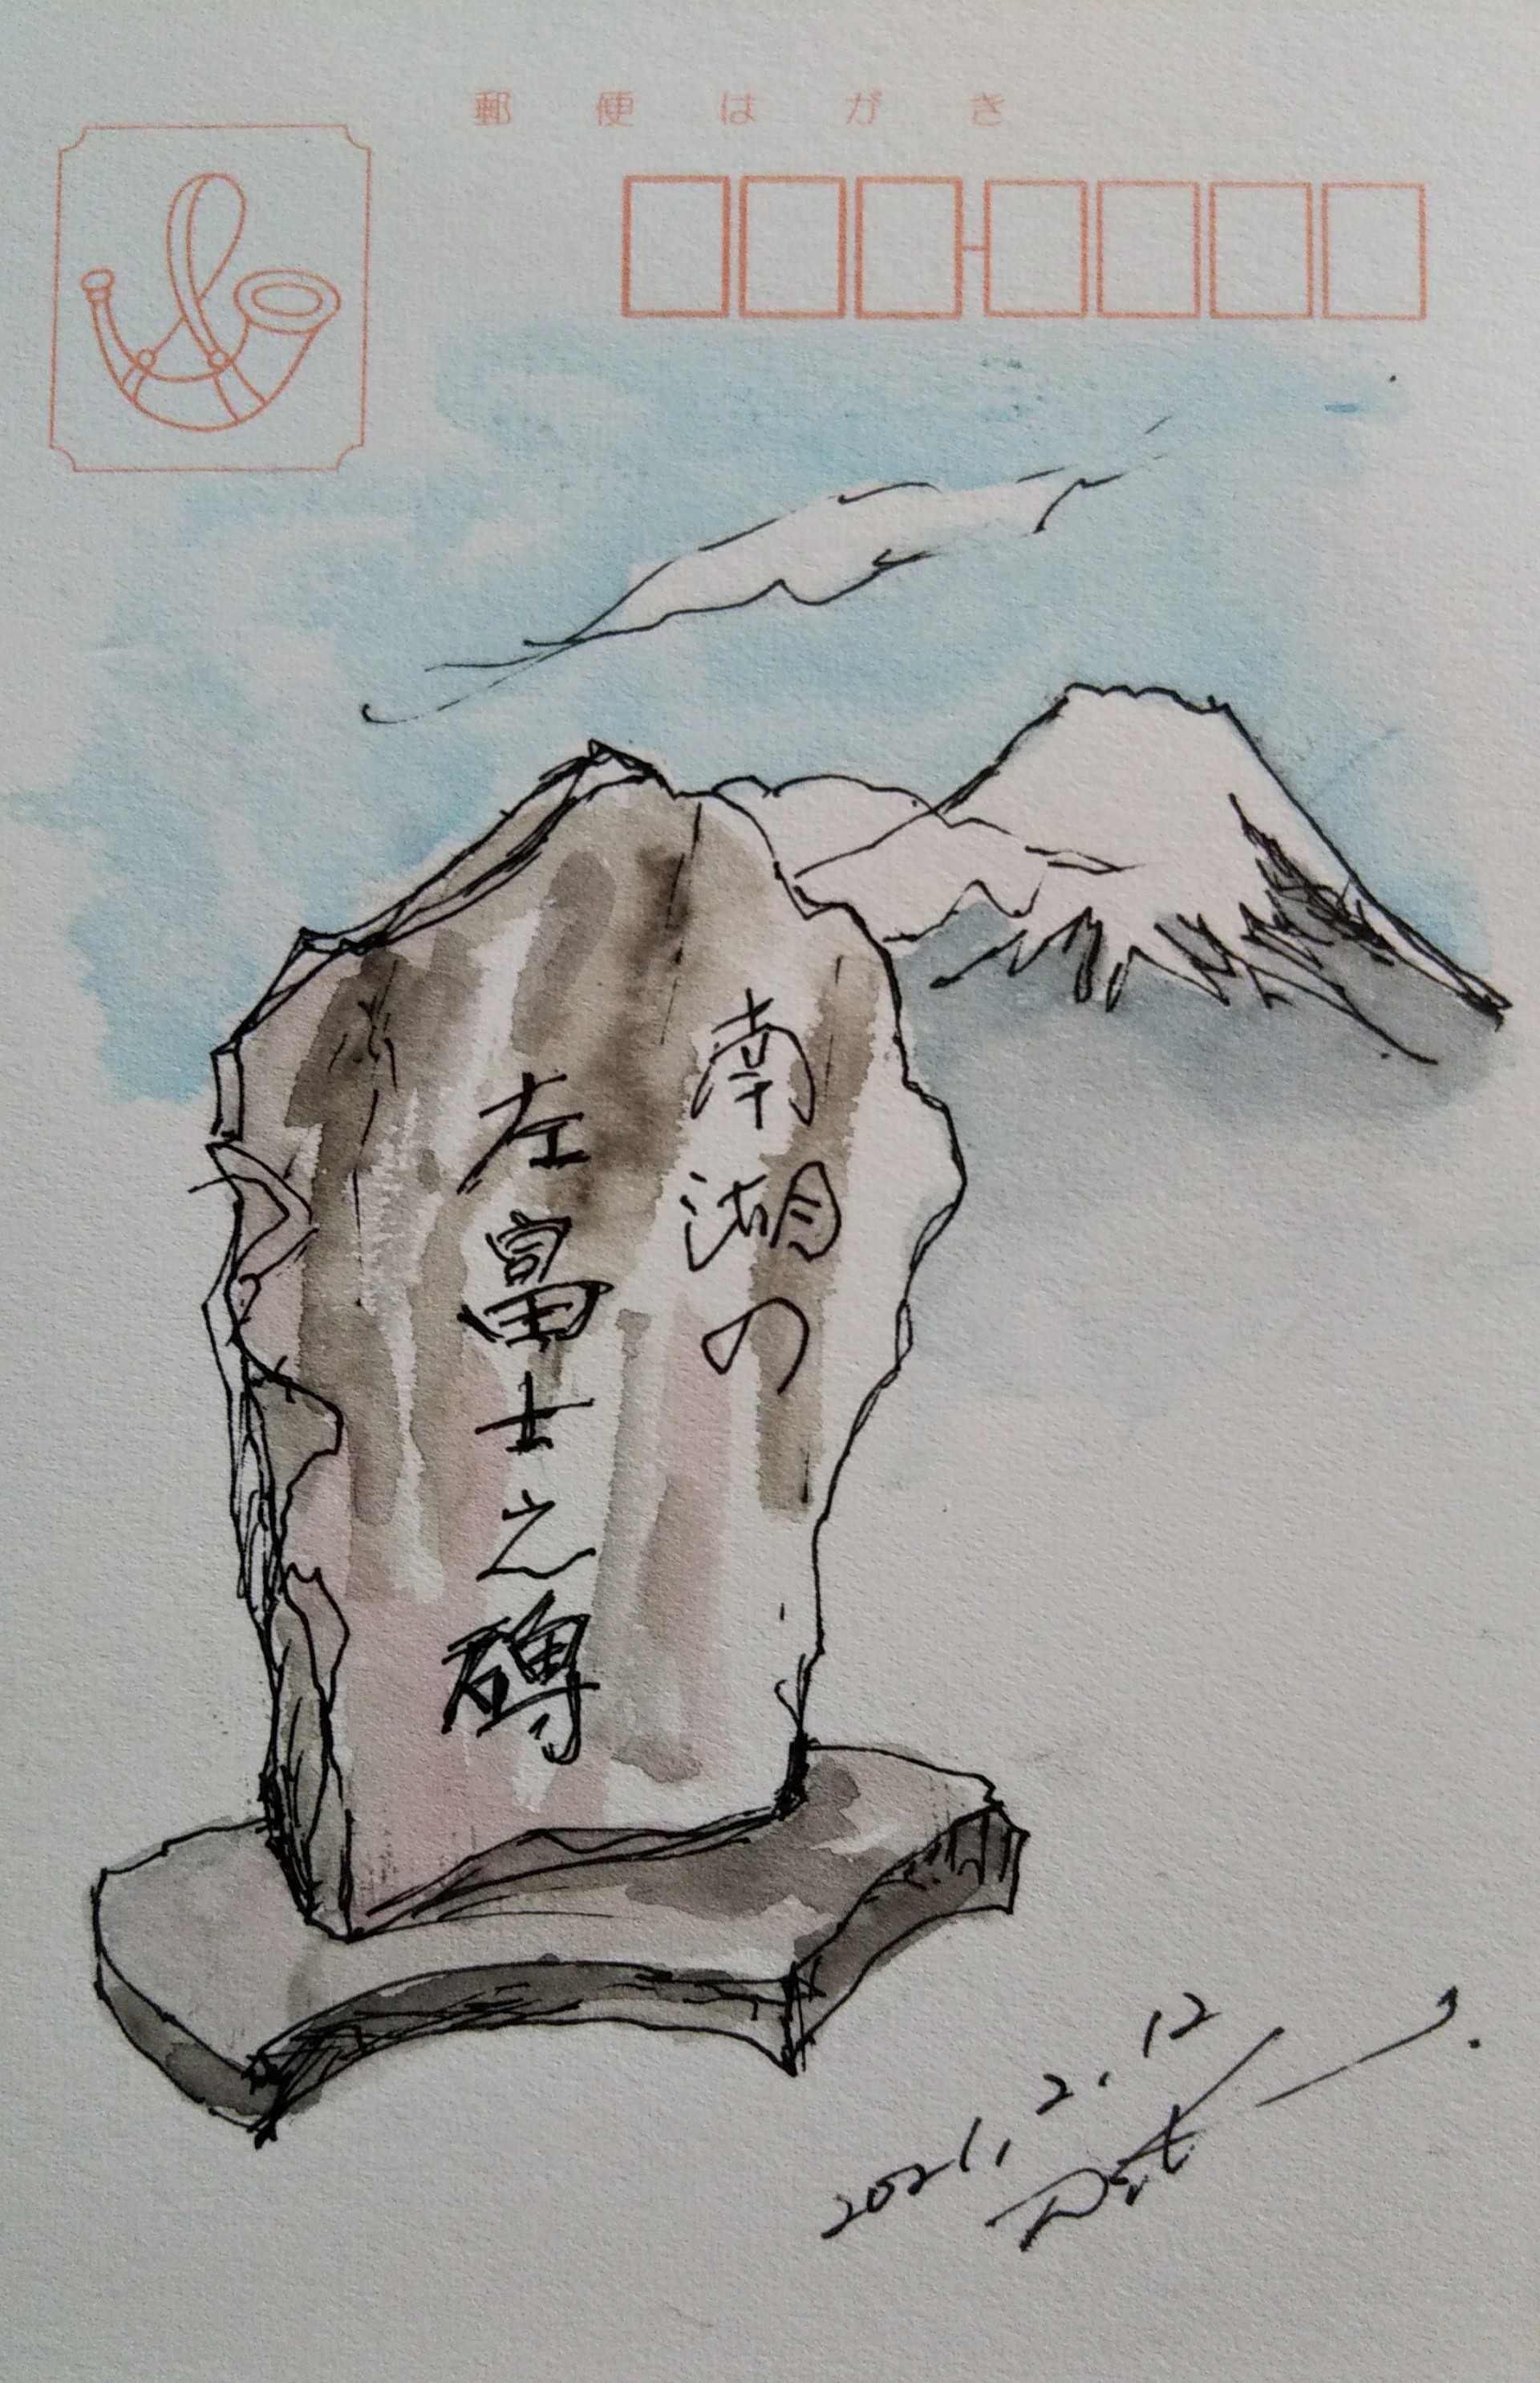 郵便はがき
南湖の
左富士之碑
2021.2.12